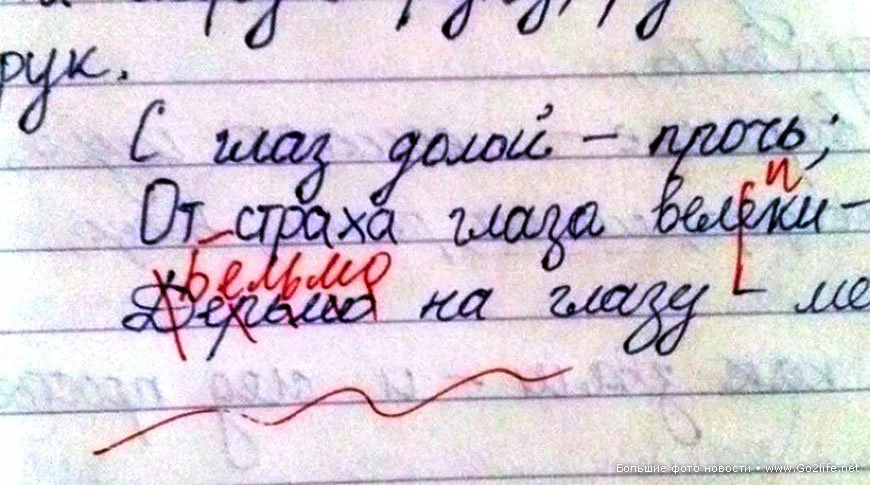 рук.
С глаз долой – прочь;
и
От страха глаза велеки –
Бельмо
Дерьмо на глазу – ме
Большие фото новости • www.Go2life.net